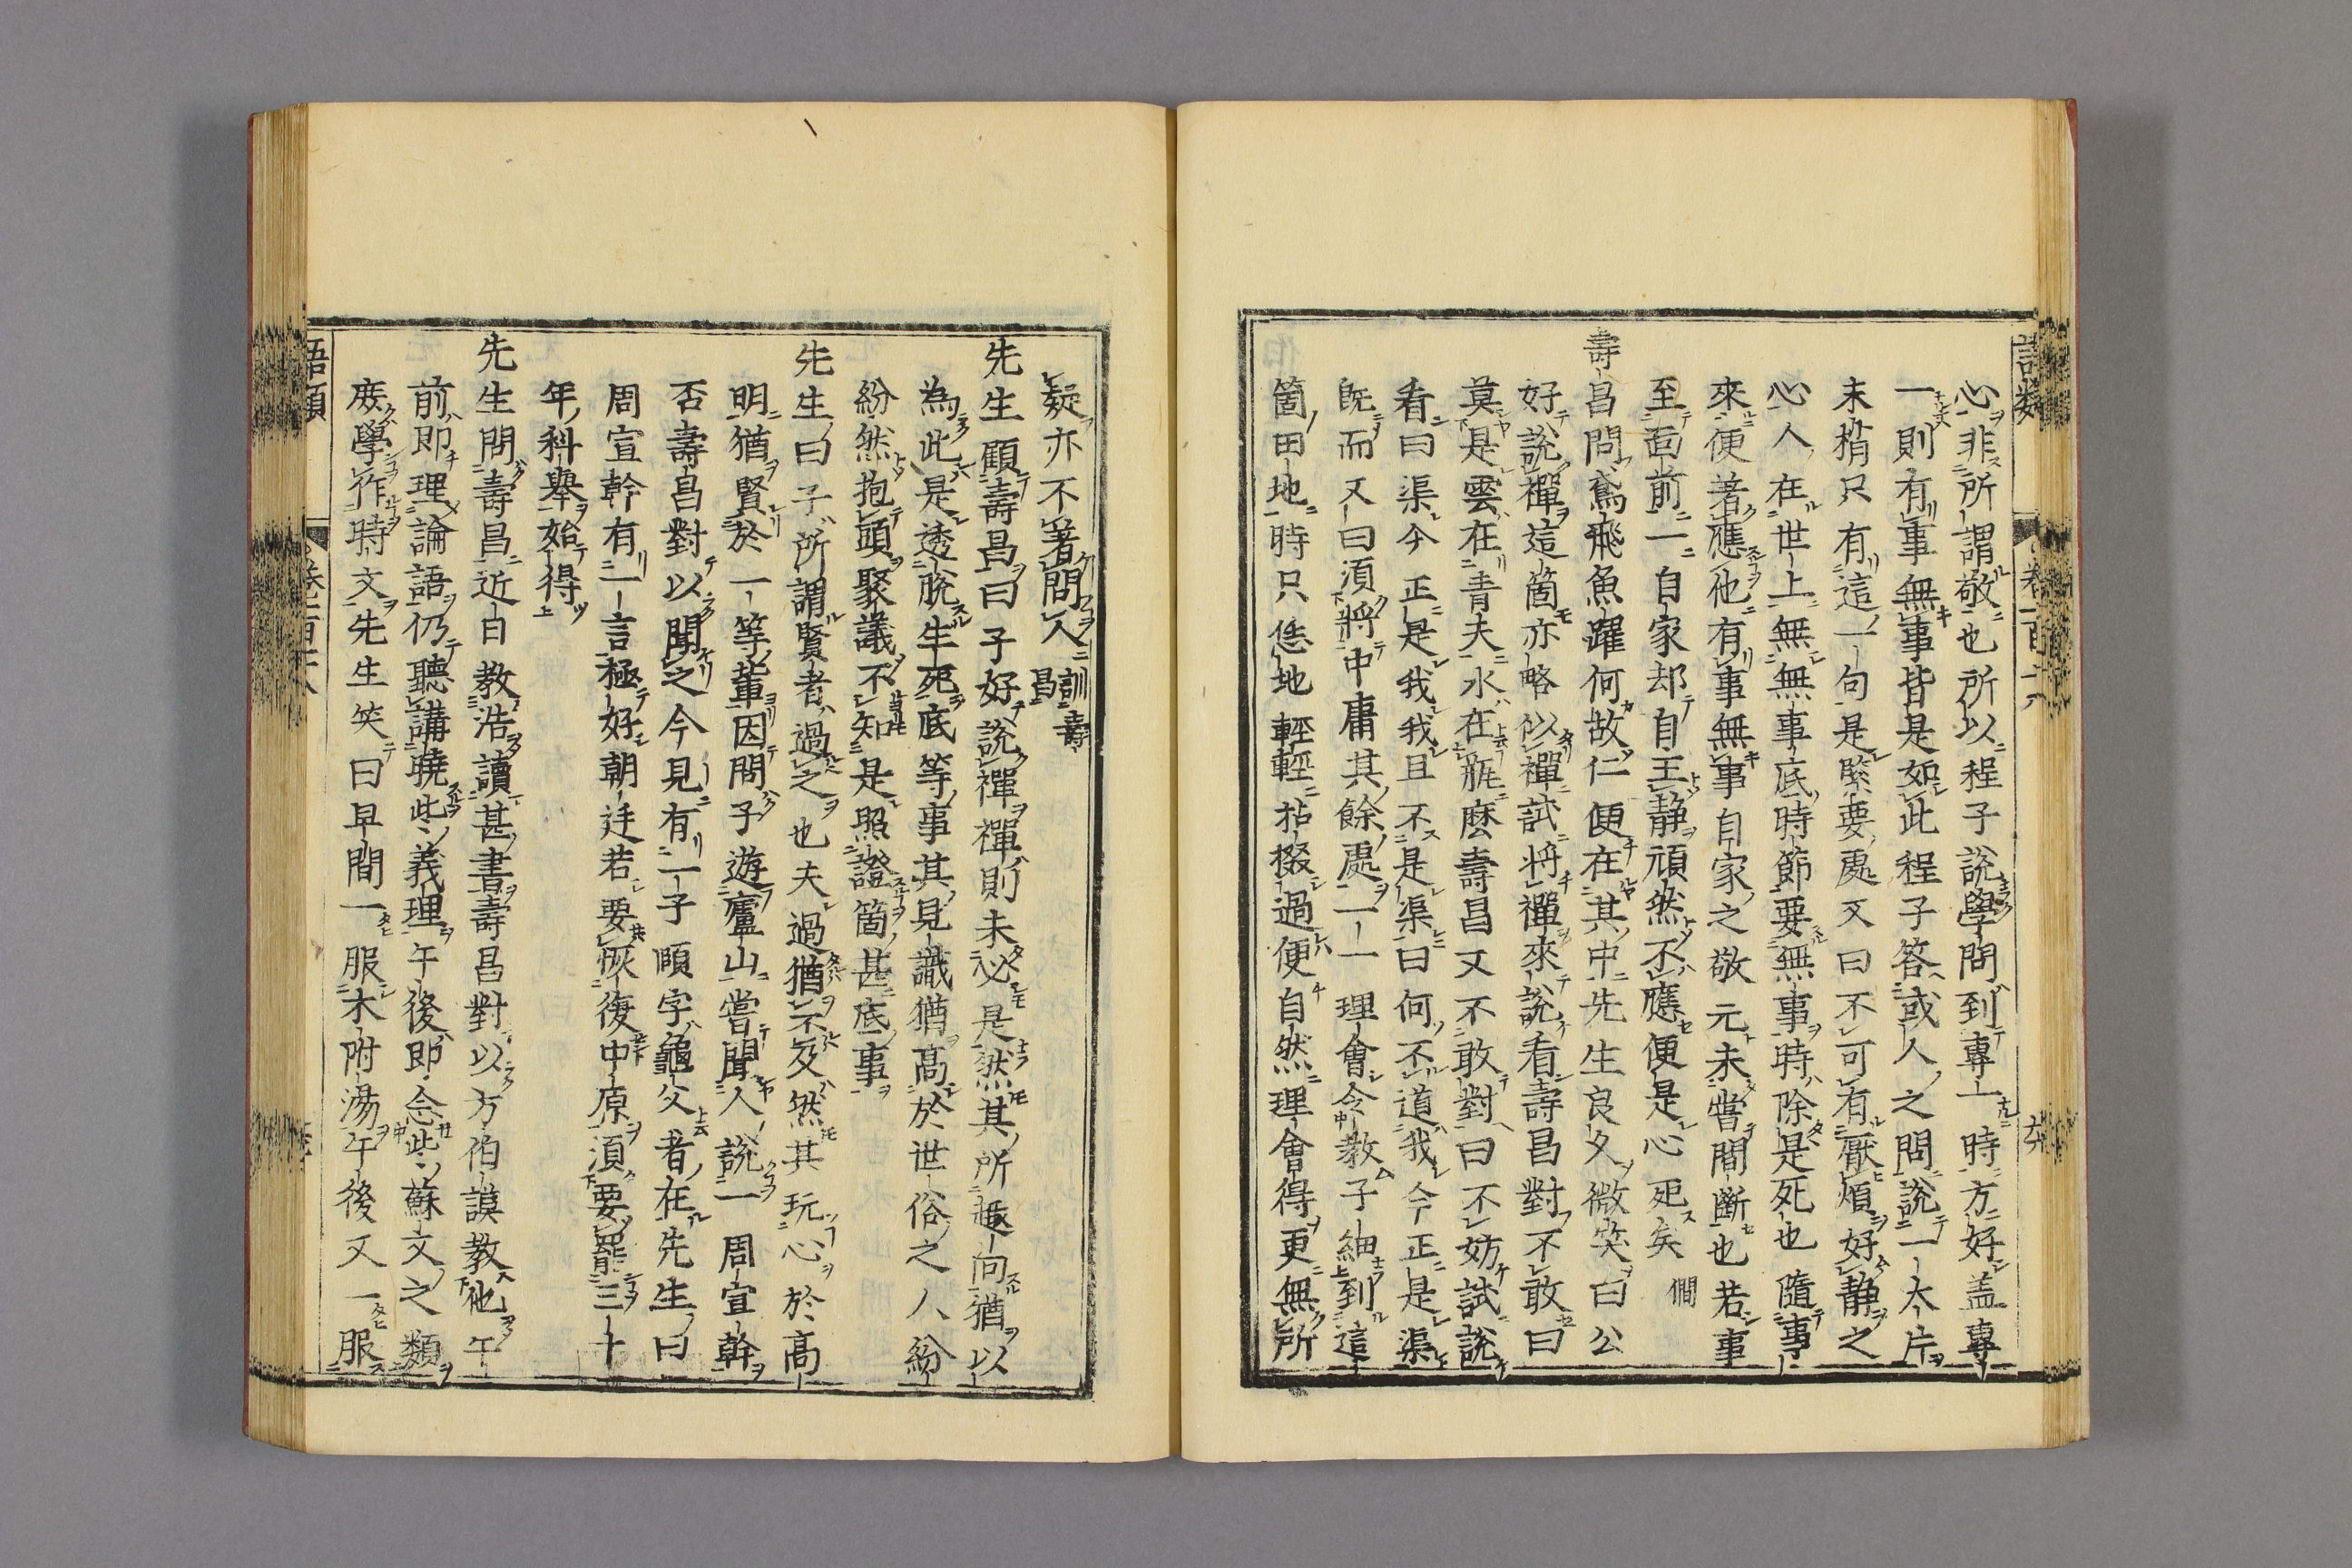 心非所謂敬也所以程子說學問到專一時方好盖專
一則有事無事皆是如此程子答或人之問說一大片
末梢只有這一句是緊要處又曰不可有厭煩好静之
心人在世上無無事底時節要無事時除是死也隨事
來便著應他有事無事自家之敬元未嘗間斷也若事
至面前一自家却自主静頑然不應便是心死矣 僴
壽昌問鳶飛魚躍何故仁便在其中先生良久微笑曰公
好說禪這箇亦略似禪試將禪來說看壽昌對不敢曰
莫是雲在青天水在瓶麽壽昌又不敢對曰不妨試說
看曰渠今正是我我且不是渠曰何不道我今正是渠
既而又曰須將中庸其餘處一一理會令教子細到這
箇田地時只恁地輕輕拈掇過便自然理會得更無所
疑亦不著問人 訓壽昌
先生顧壽昌曰子好說禪禪則未必是然其所趣向猶以
為此是透脫生死底等事其見識猶高於世俗之人紛
紛然抱頭聚議不知是照證箇甚底事
先生曰子所謂賢者過之也夫過猶不及然其玩心於高
明猶賢於一等輩因問子遊廬山嘗聞人說一周宣幹
否壽昌對以聞之今見有一子頤字龜父者在先生曰
周宣幹有一言極好朝廷若要恢復中原須要罷三十
年科舉始得
先生問壽昌近日教浩讀甚書壽昌對以方伯謨教他午
前即理論語仍聽講曉些義理午後即念些蘇文之類
庶學作時文先生笑曰早間一服木附湯午後又一服
語類
卷一百一十八